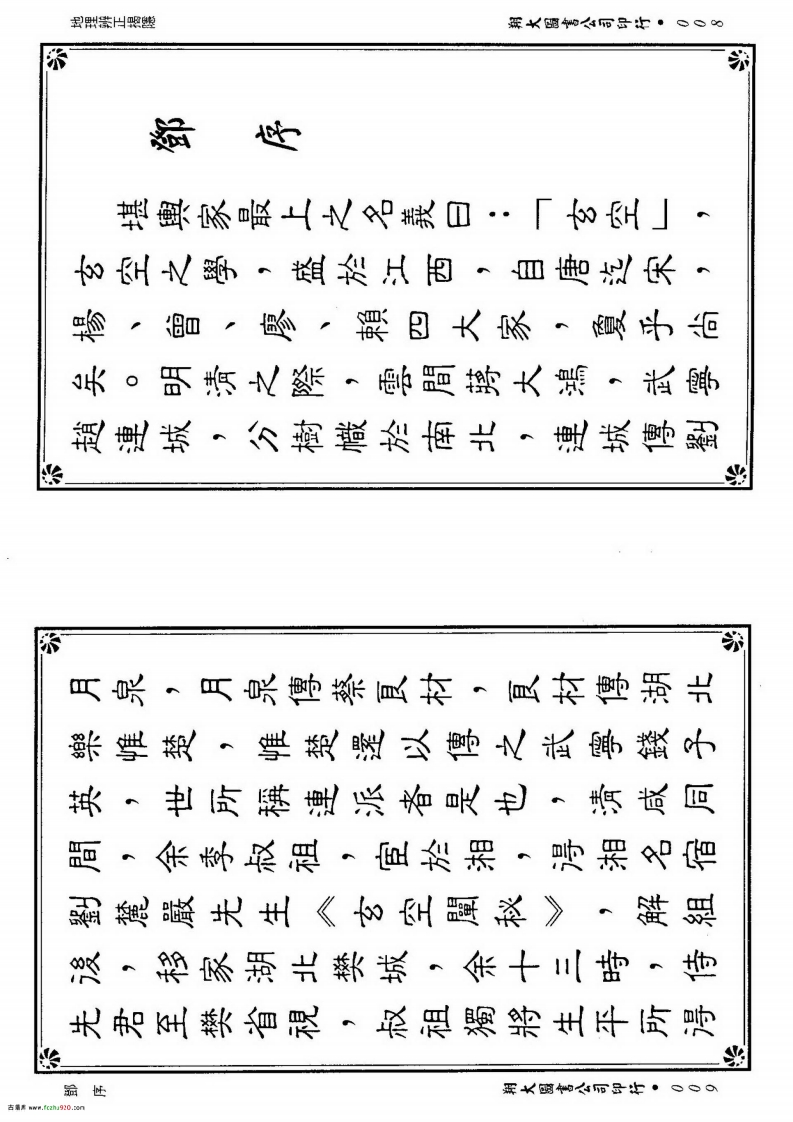 地理辨正揭隱
翔大圖書公司印行•008
鄧序
堪輿家最上之名義曰：「玄空」，
玄空之學，盛於江西，自唐迄宋，
楊、曾、廖、賴四大家，敻乎尚
矣。明清之際，雲間蔣大鴻，武寧
趙連城，分樹幟於南北，連城傳劉
月泉，月泉傳蔡良材，良材傳湖北
樂惟楚，惟楚還以傳之武寧錢子
英，世所稱連派者是也，清咸同
間，余季叔祖，宦於湘，得湘名宿
劉麓嚴先生《玄空闡秘》，解組
後，移家湖北樊城，余十三時，侍
先君至樊省視，叔祖獨將生平所得
鄧序
翔大圖書公司印行•009
古籍库 www.fczhu920.com